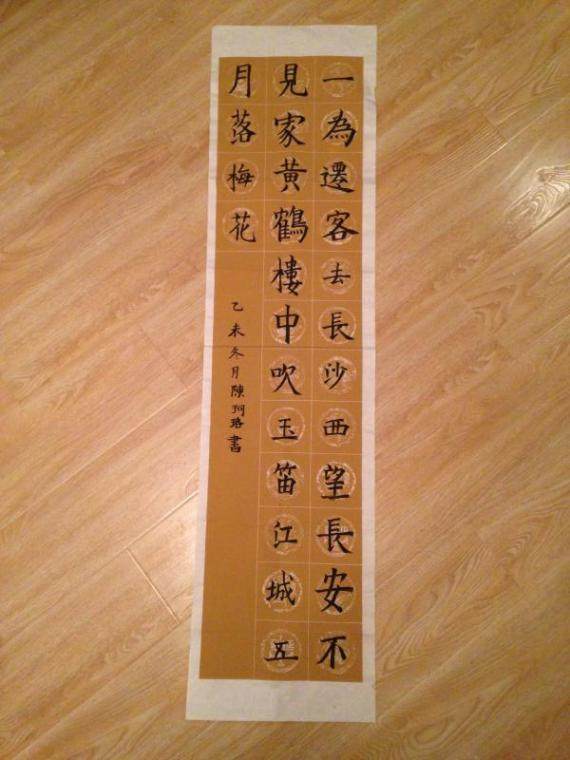 一為遷客去長沙西望長安不
見家黃鶴樓中吹玉笛江城五
月落梅花
乙未冬月陳珂珞書